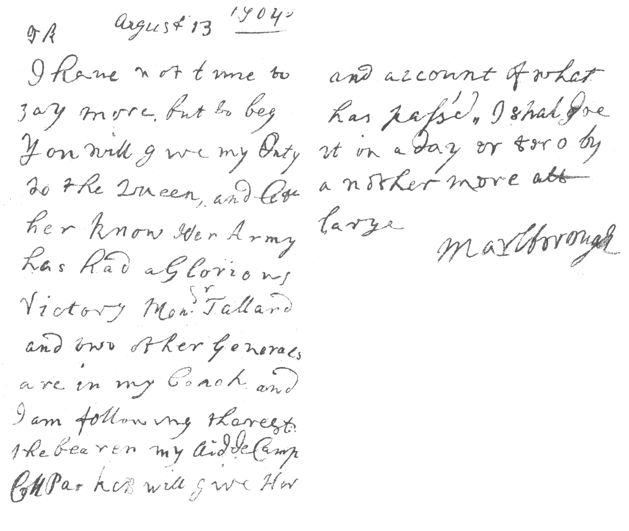 August 13 1704
I have not time to
say more, but to beg
You will give my Duty
to the Queen, and let
her know Her Army
has had a Glorious
Victory Mon.sr Tallard
and two other Generals
are in my Coach and
I am following the rest.
the bearer my Aid de Camp
Coll Parker will give Her
and account of what
has passed, I shal doe
it in a day or two by
a nother more att
large
Marlborough